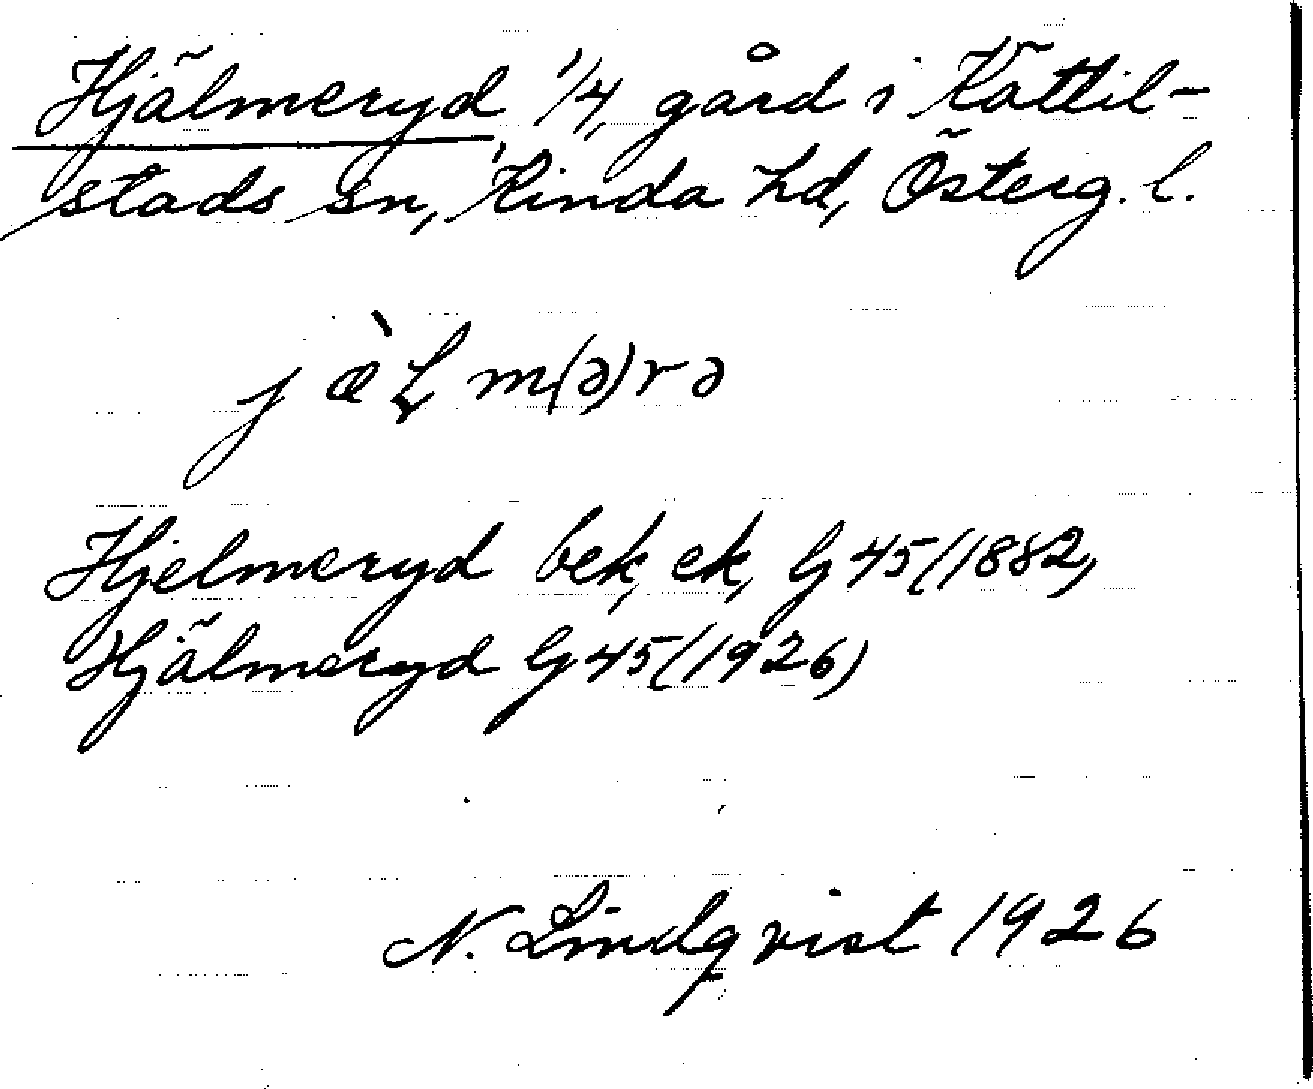 Hjälmeryd 1/4, gård i Kättil-
stads sn, Kinda hd, Österg. l.
jæ̀ɫm(ə)rə
Hjelmeryd bek, ek, G 45 (1882,
Hjälmeryd G 45 (1926)
N. Lindqvist 1926